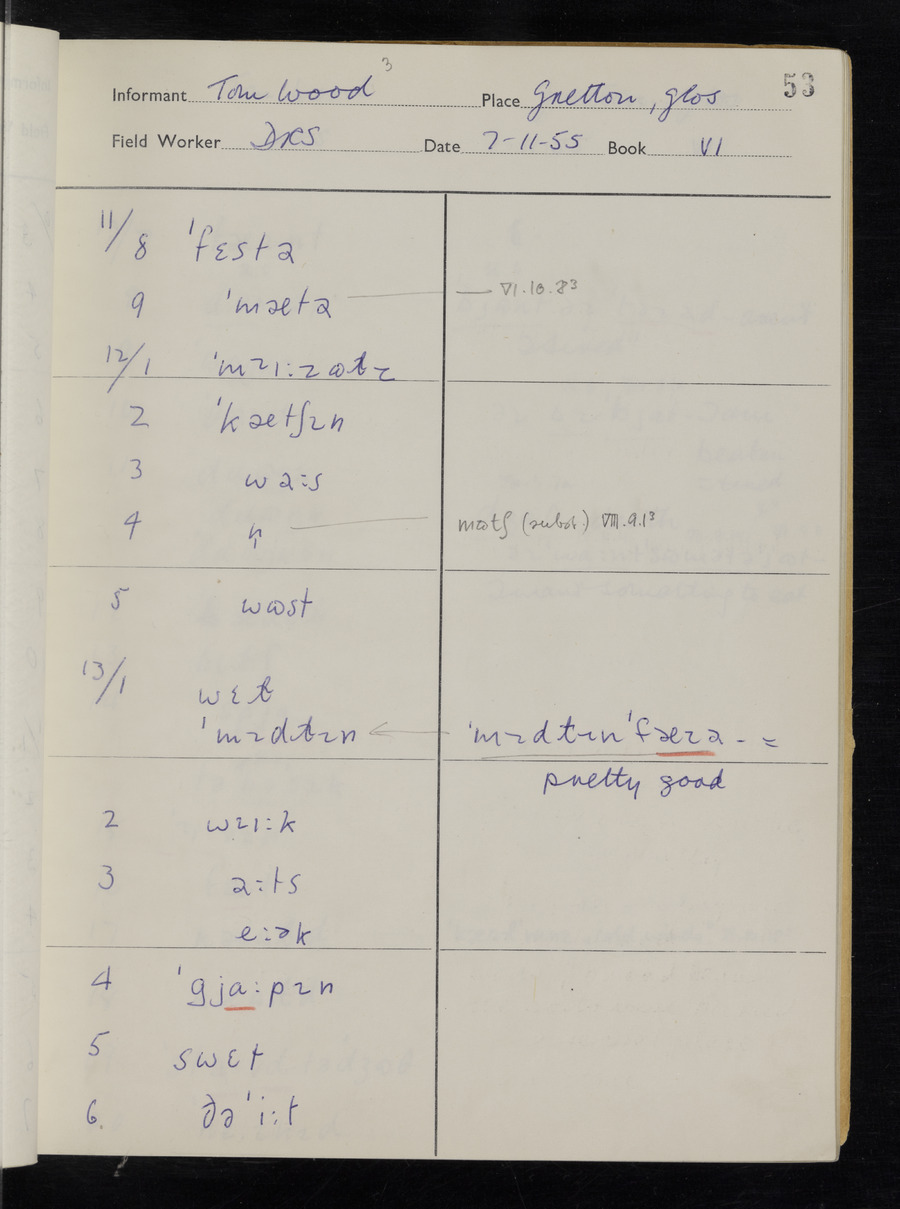 53
Informant Tom Wood 3 Place Gretton, Glos
Field Worker DRS Date 7-11-55 Book VI
11/8 ˈfɛstə
9 ˈmætə — VI.10.8³
12/1
2 ˈkætʃɪn
3 wəːs
4 — (subst.) VIII.9.1³
5
13/1 wɛt
ˈmɪdlɪn ← ˈmɪdlɪnˈfæɪə - =
pretty good
2 wɪiːk
3 əːts
eːək
4 ˈgjaːpɪn
5 swɛt
6. ðəˈiːt